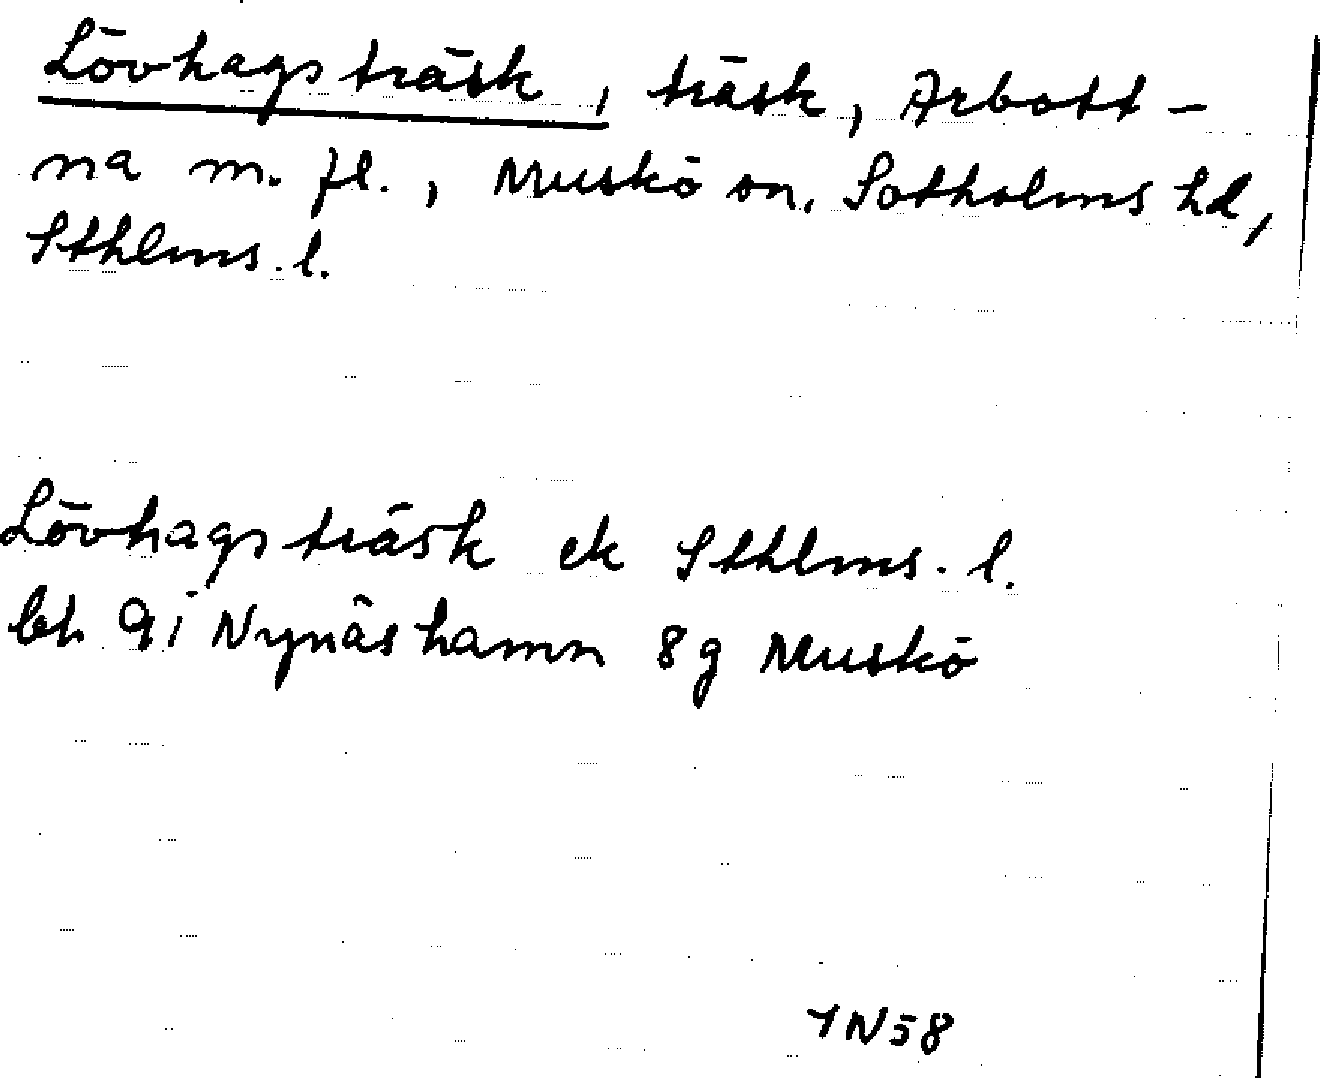 Lövhagsträsk, träsk, Arbott-
na m. fl., Muskö sn, Sotholms hd,
Sthlms. l.
Lövhagsträsk ek Sthlms. l.
bl. 9i Nynäshamn 8g Muskö
1N58